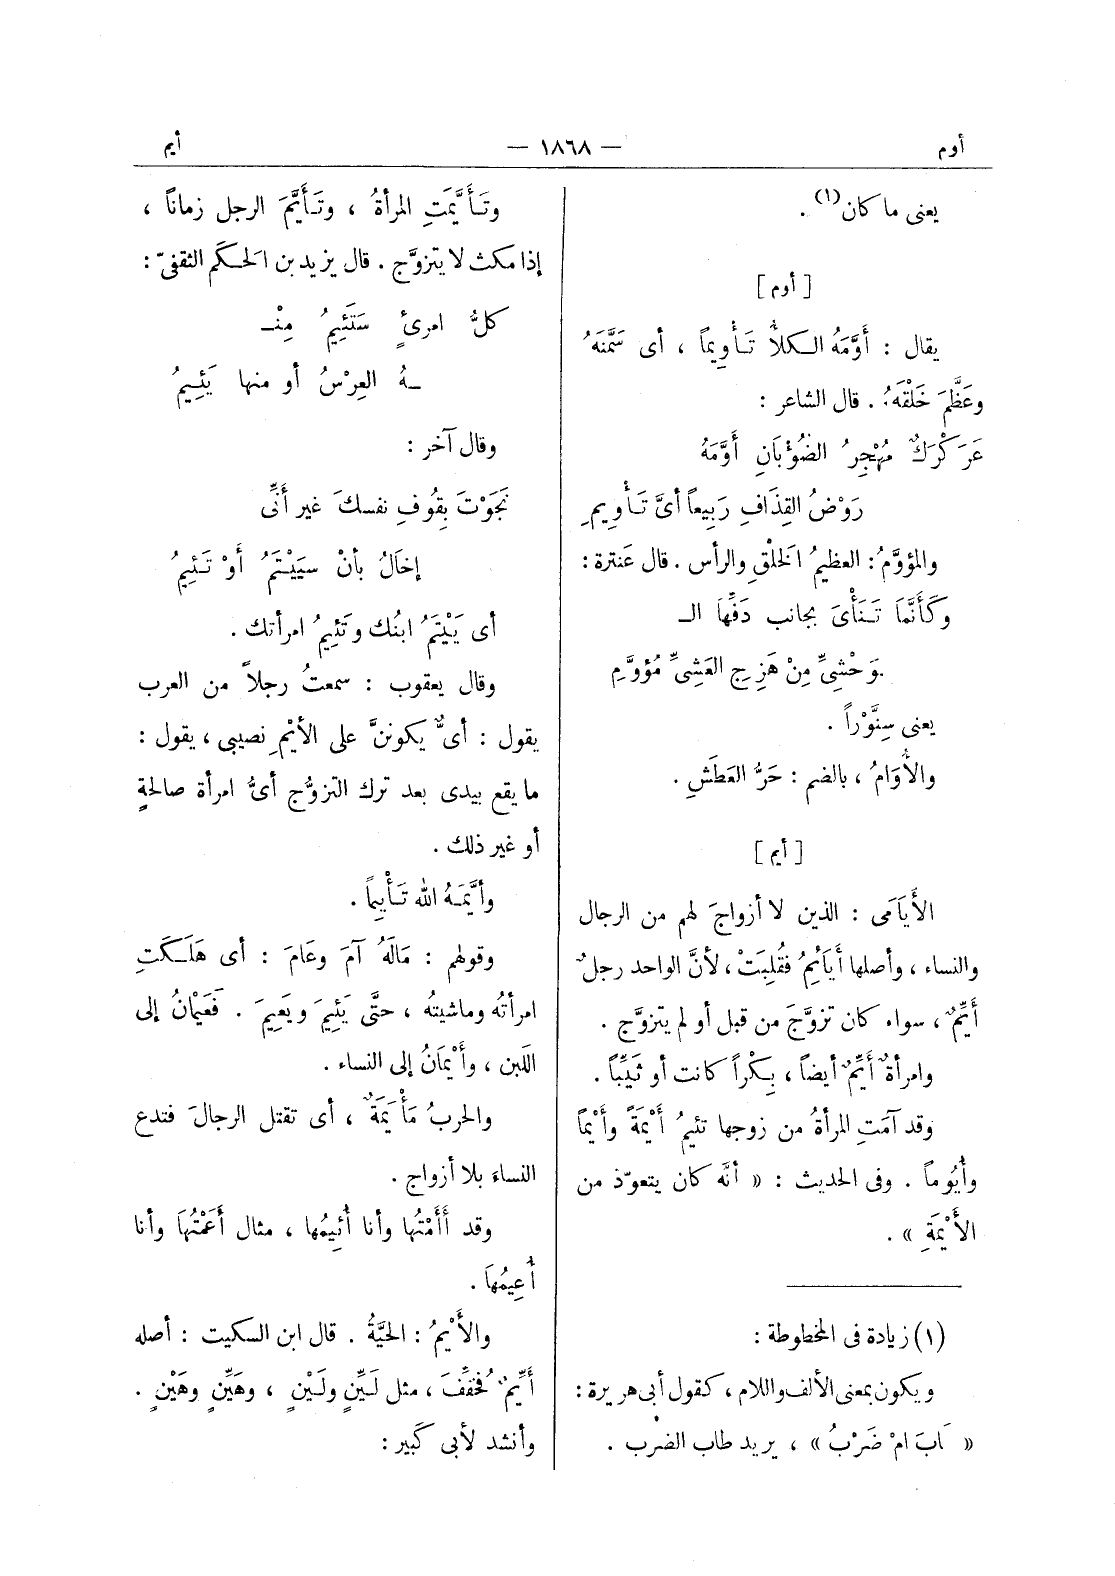 أوم — ١٨٦٨ — أيم
يعنى ما كان(١) .
[ أوم ]
يقال : أَوَّمَهُ الكلأُ تَأْوِيماً ، أى سَمَّنَهُ
وعَظَّمَ خَلْقَهُ . قال الشاعر :
عَرَكْرَكٌ مُهْجِرُ الضُوْبَانِ أَوَّمَهُ
رَوْضُ القِذَافِ رَبِيعاً أىَّ تَأْوِيمِ
والمؤوَّمُ : العظيمُ الخلْقِ والرأس . قال عَنترة :
وكَأَنَّمَا تَنَأْىَ بجانب دَفِّهَا الـ
ـوَحْشِىِّ مِنْ هَزِجِ العَشِىِّ مُؤوَّمِ
يعنى سِنَّوْراً .
والأُوَامُ ، بالضم : حَرُّ العَطَشِ .
[ أيم ]
الأَيَامَى : الذين لا أزواجَ لهم من الرجال
والنساء ، وأصلها أَيَائِمُ فقُلِبَتْ ، لأنَّ الواحد رجلٌ
أَيِّمٌ ، سواء كان تزوَّجَ من قبل أو لم يتزوَّج .
وامرأةٌ أَيِّمٌ أيضاً ، بِكْراً كانت أو ثَيِّباً .
وقد آمَتِ المرأةُ من زوجها تئيمُ أَيْمَةً وأَيْماً
وأُيُوماً . وفى الحديث : « أنَّه كان يتعوّذ من
الأَيْمَةِ » .
(١) زيادة فى المخطوطة :
ويكون بمعنى الألف واللام ، كقول أبى هريرة :
« ـَابَ امْ ضَرْبُ » ، يريد طاب الضرب .
وتَأَيَّمَتِ المرأةُ ، وتَأَيَّمَ الرجل زماناً ،
إذا مكث لا يتزوَّج . قال يزيد بن الحَكَم الثقفىّ :
كلُّ امرئٍ سَتَئِيمُ مِنْـ
ـهُ العِرْسُ أو منها يَئِيمُ
وقال آخر :
نَجَوْتَ بِقُوفِ نفسكَ غير أَنِّى
إخَالُ بأنْ سيَيْتَمُ أَوْ تَئِيمُ
أى يَيْتَمُ ابنُك وتَئِيمُ امرأتك .
وقال يعقوب : سمعتُ رجلاً من العرب
يقول : أىٌّ يكوننَّ على الأيْمِ نصيبى ، يقول :
ما يقع بيدى بعد ترك التزوُّج أىُّ امرأة صالحةٍ
أو غير ذلك .
وأيَّمَهُ الله تَأْيِيماً .
وقولهم : مَالَهُ آمَ وعَامَ : أى هَلَكَتِ
امرأتُه وماشيتُه ، حتَّى يَئِيمَ ويَعِيمَ . فَعَيْمَانُ إلى
اللبن ، وأَيْمَانُ إلى النساء .
والحربُ مَأْيَمَةٌ ، أى تقتل الرجالَ فتدع
النساءَ بلا أزواج .
وقد أَأَمْتُها وأنا أُئِيمُها ، مثال أَعَمْتُهَا وأنا
أُعِيمُهَا .
والأَيْمُ : الحيَّةُ . قال ابن السكيت : أصله
أَيِّمٌ فخفِّفَ ، مثل لَيِّنٍ ولَيْنٍ ، وهَيِّنٍ وهَيْنٍ .
وأنشد لأبى كَبير :